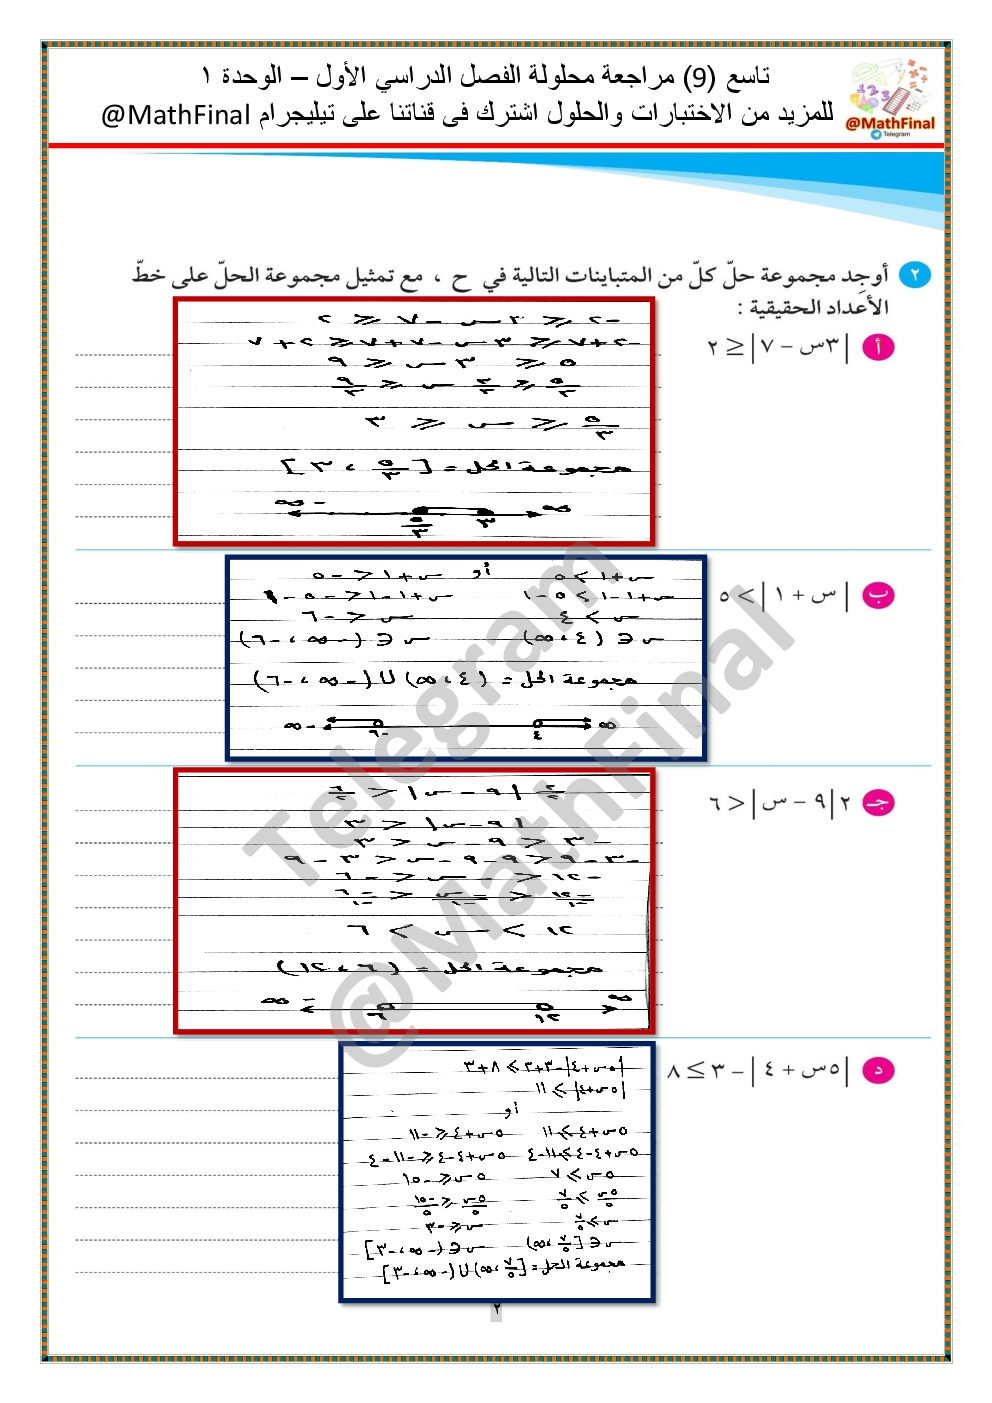 تاسع (9) مراجعة محلولة الفصل الدراسي الأول – الوحدة ١
للمزيد من الاختبارات والحلول اشترك فى قناتنا على تيليجرام @MathFinal
@MathFinal
Telegram
٢ أوجِد مجموعة حلّ كلّ من المتباينات التالية في ح ، مع تمثيل مجموعة الحلّ على خطّ
الأعداد الحقيقية :
أ |٣س − ٧| ≥ ٢
−٢ ≥ ٣س − ٧ ≥ ٢
−٢+٧ ≥ ٣س−٧+٧ ≥ ٢+٧
٥ ≥ ٣س ≥ ٩
٥/٣ ≥ ٣/٣ س ≥ ٩/٣
٥/٣ ≥ س ≥ ٣
مجموعة الحل = [٥/٣ ، ٣]
−∞ ٥/٣ ٣ ∞
ب |س + ١| > ٥
س+١ > ٥ أو س+١ < −٥
س+١−١ > ٥−١ س+١−١ < −٥−١
س > ٤ س < −٦
س ∈ (٤،∞) س ∈ (−∞،−٦)
مجموعة الحل = (٤،∞) ∪ (−∞،−٦)
−∞ −٦ ٤ ∞
جـ ٢|٩ − س| < ٦
٢/٢ |٩ − س| < ٦/٢
|٩−س| < ٣
−٣ < ٩−س < ٣
−٣−٩ < ٩−٩−س < ٣−٩
−١٢ < −س < −٦
−١٢/−١ > −س/−١ > −٦/−١
١٢ > س > ٦
مجموعة الحل = (٦،١٢)
−∞ ٦ ١٢ ∞
د |٥س + ٤| − ٣ ≤ ٨
|٥س+٤|−٣+٣ ≤ ٨+٣
|٥س+٤| ≤ ١١
أو
٥س+٤ ≤ ١١ ٥س+٤ ≥ −١١
٥س+٤−٤ ≤ ١١−٤ ٥س+٤−٤ ≥ −١١−٤
٥س ≤ ٧ ٥س ≥ −١٥
٥س/٥ ≤ ٧/٥ ٥س/٥ ≥ −١٥/٥
س ≤ ٧/٥ س ≥ −٣
س ∈ [٧/٥،∞) س ∈ (−∞،−٣]
مجموعة الحل = [٧/٥،∞) ∪ (−∞،−٣]
٢
Telegram
@MathFinal